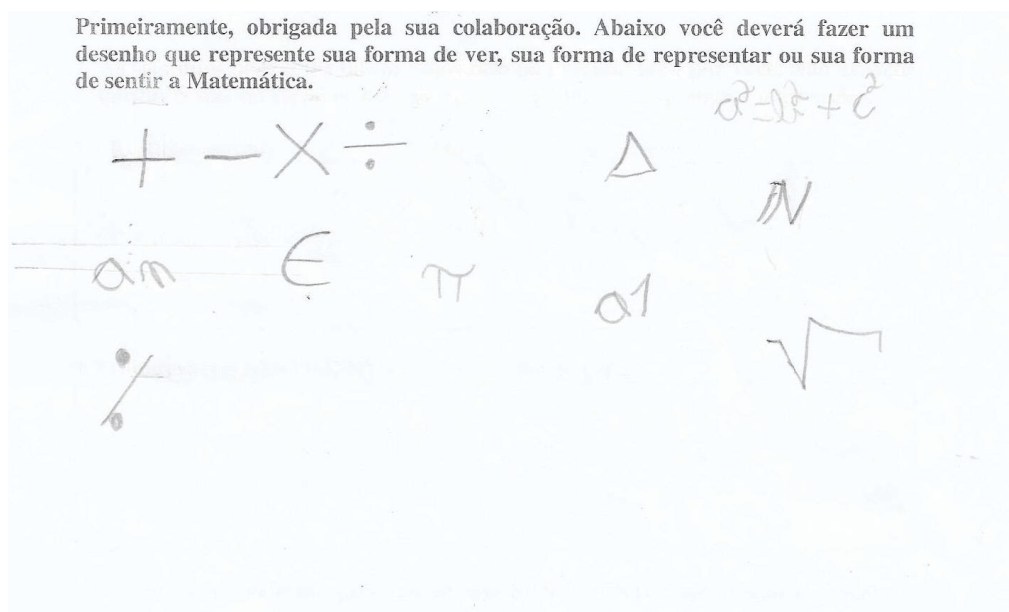 Primeiramente, obrigada pela sua colaboração. Abaixo você deverá fazer um
desenho que represente sua forma de ver, sua forma de representar ou sua forma
de sentir a Matemática.
a² = b² + c²
+ − × ÷ Δ
ℕ
an ∈ π a1
√
%